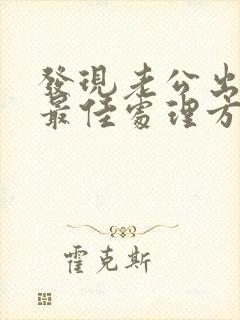 發現老公出
最佳處理方
霍克斯